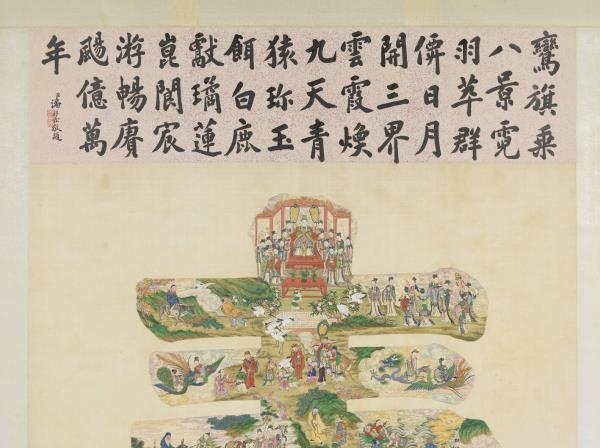 鸞旗乘
八景霓
羽萃群
僊日月
開三界
雲霞煥
九天青
猿珎玉
餌白鹿
獻璚蓮
崑閬宸
游暢賡
颺億萬
年
臣潘敬題